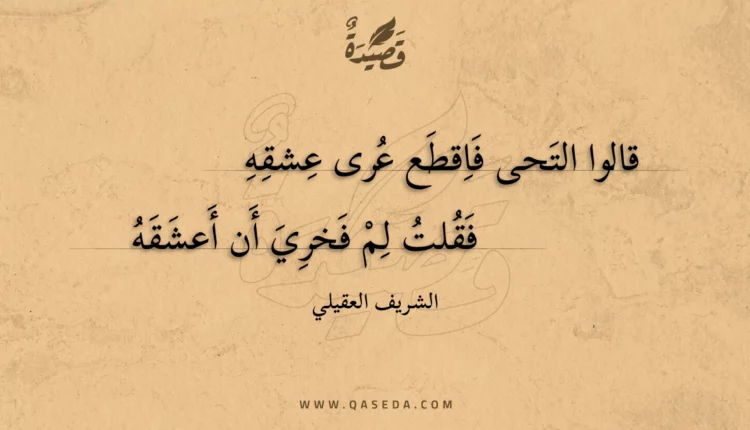 قَصِيدَةٌ
قالوا التَحى فَاِقطَع عُرى عِشقِهِ
فَقُلتُ لِمْ فَخرِيَ أَن أَعشَقَهُ
الشريف العقيلي
WWW.QASEDA.COM